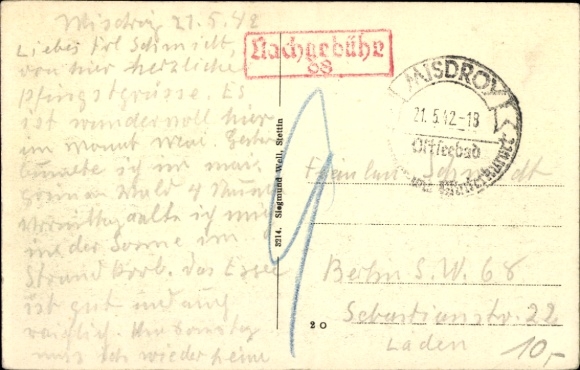 Misdroy 21.5.42
Liebes Frl Schmidt,
von hier herzliche
Pfingstgrüsse. Es
ist wundervoll hier
im Monat Mai.
ich im
Wald 4 Stund
Vormittag ich mich
in der Sonne im
Strandkorb. Das Essen
ist gut und auch
reichlich. Am Sonntag
muss ich wieder heim
Nachgebühr
68
MISDROY
21.5.42-18
Ostseebad
3214. Siegmund Weil, Stettin
Fräulein Schmidt
Berlin S.W. 68
Sebastianstr. 22
Laden
20
10,-